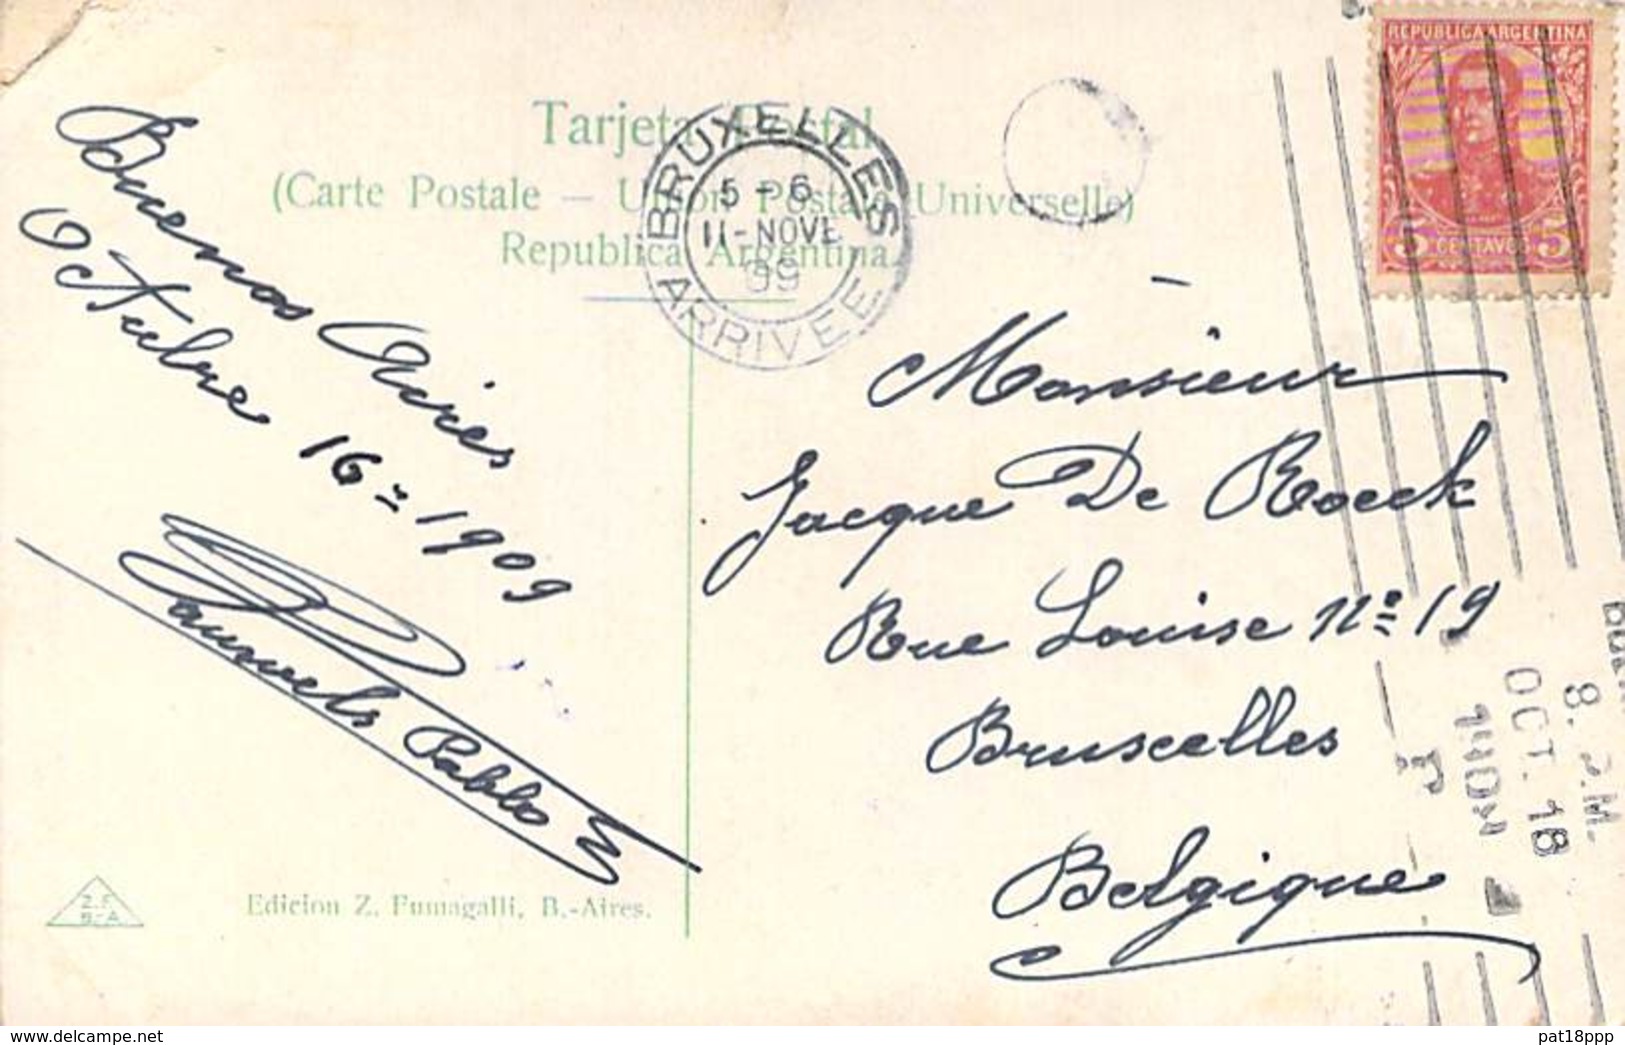 Tarjeta Postal
(Carte Postale — Union Postale Universelle)
Republica Argentina.
BRUXELLES
5 - 6
11-NOVE
09
ARRIVEE
REPUBLICA ARGENTINA
5 CENTAVOS 5
Buenos Aires
Octubre 16= 1909
Pauwels Pablo
Monsieur
Jacque De Roeck
Rue Louise nº 19
Bruxelles
Belgique
8. P.M.
OCT. 18
Z.F.
B.-A.
Edicion Z. Fumagalli, B.-Aires.
www.delcampe.net
pat18ppp